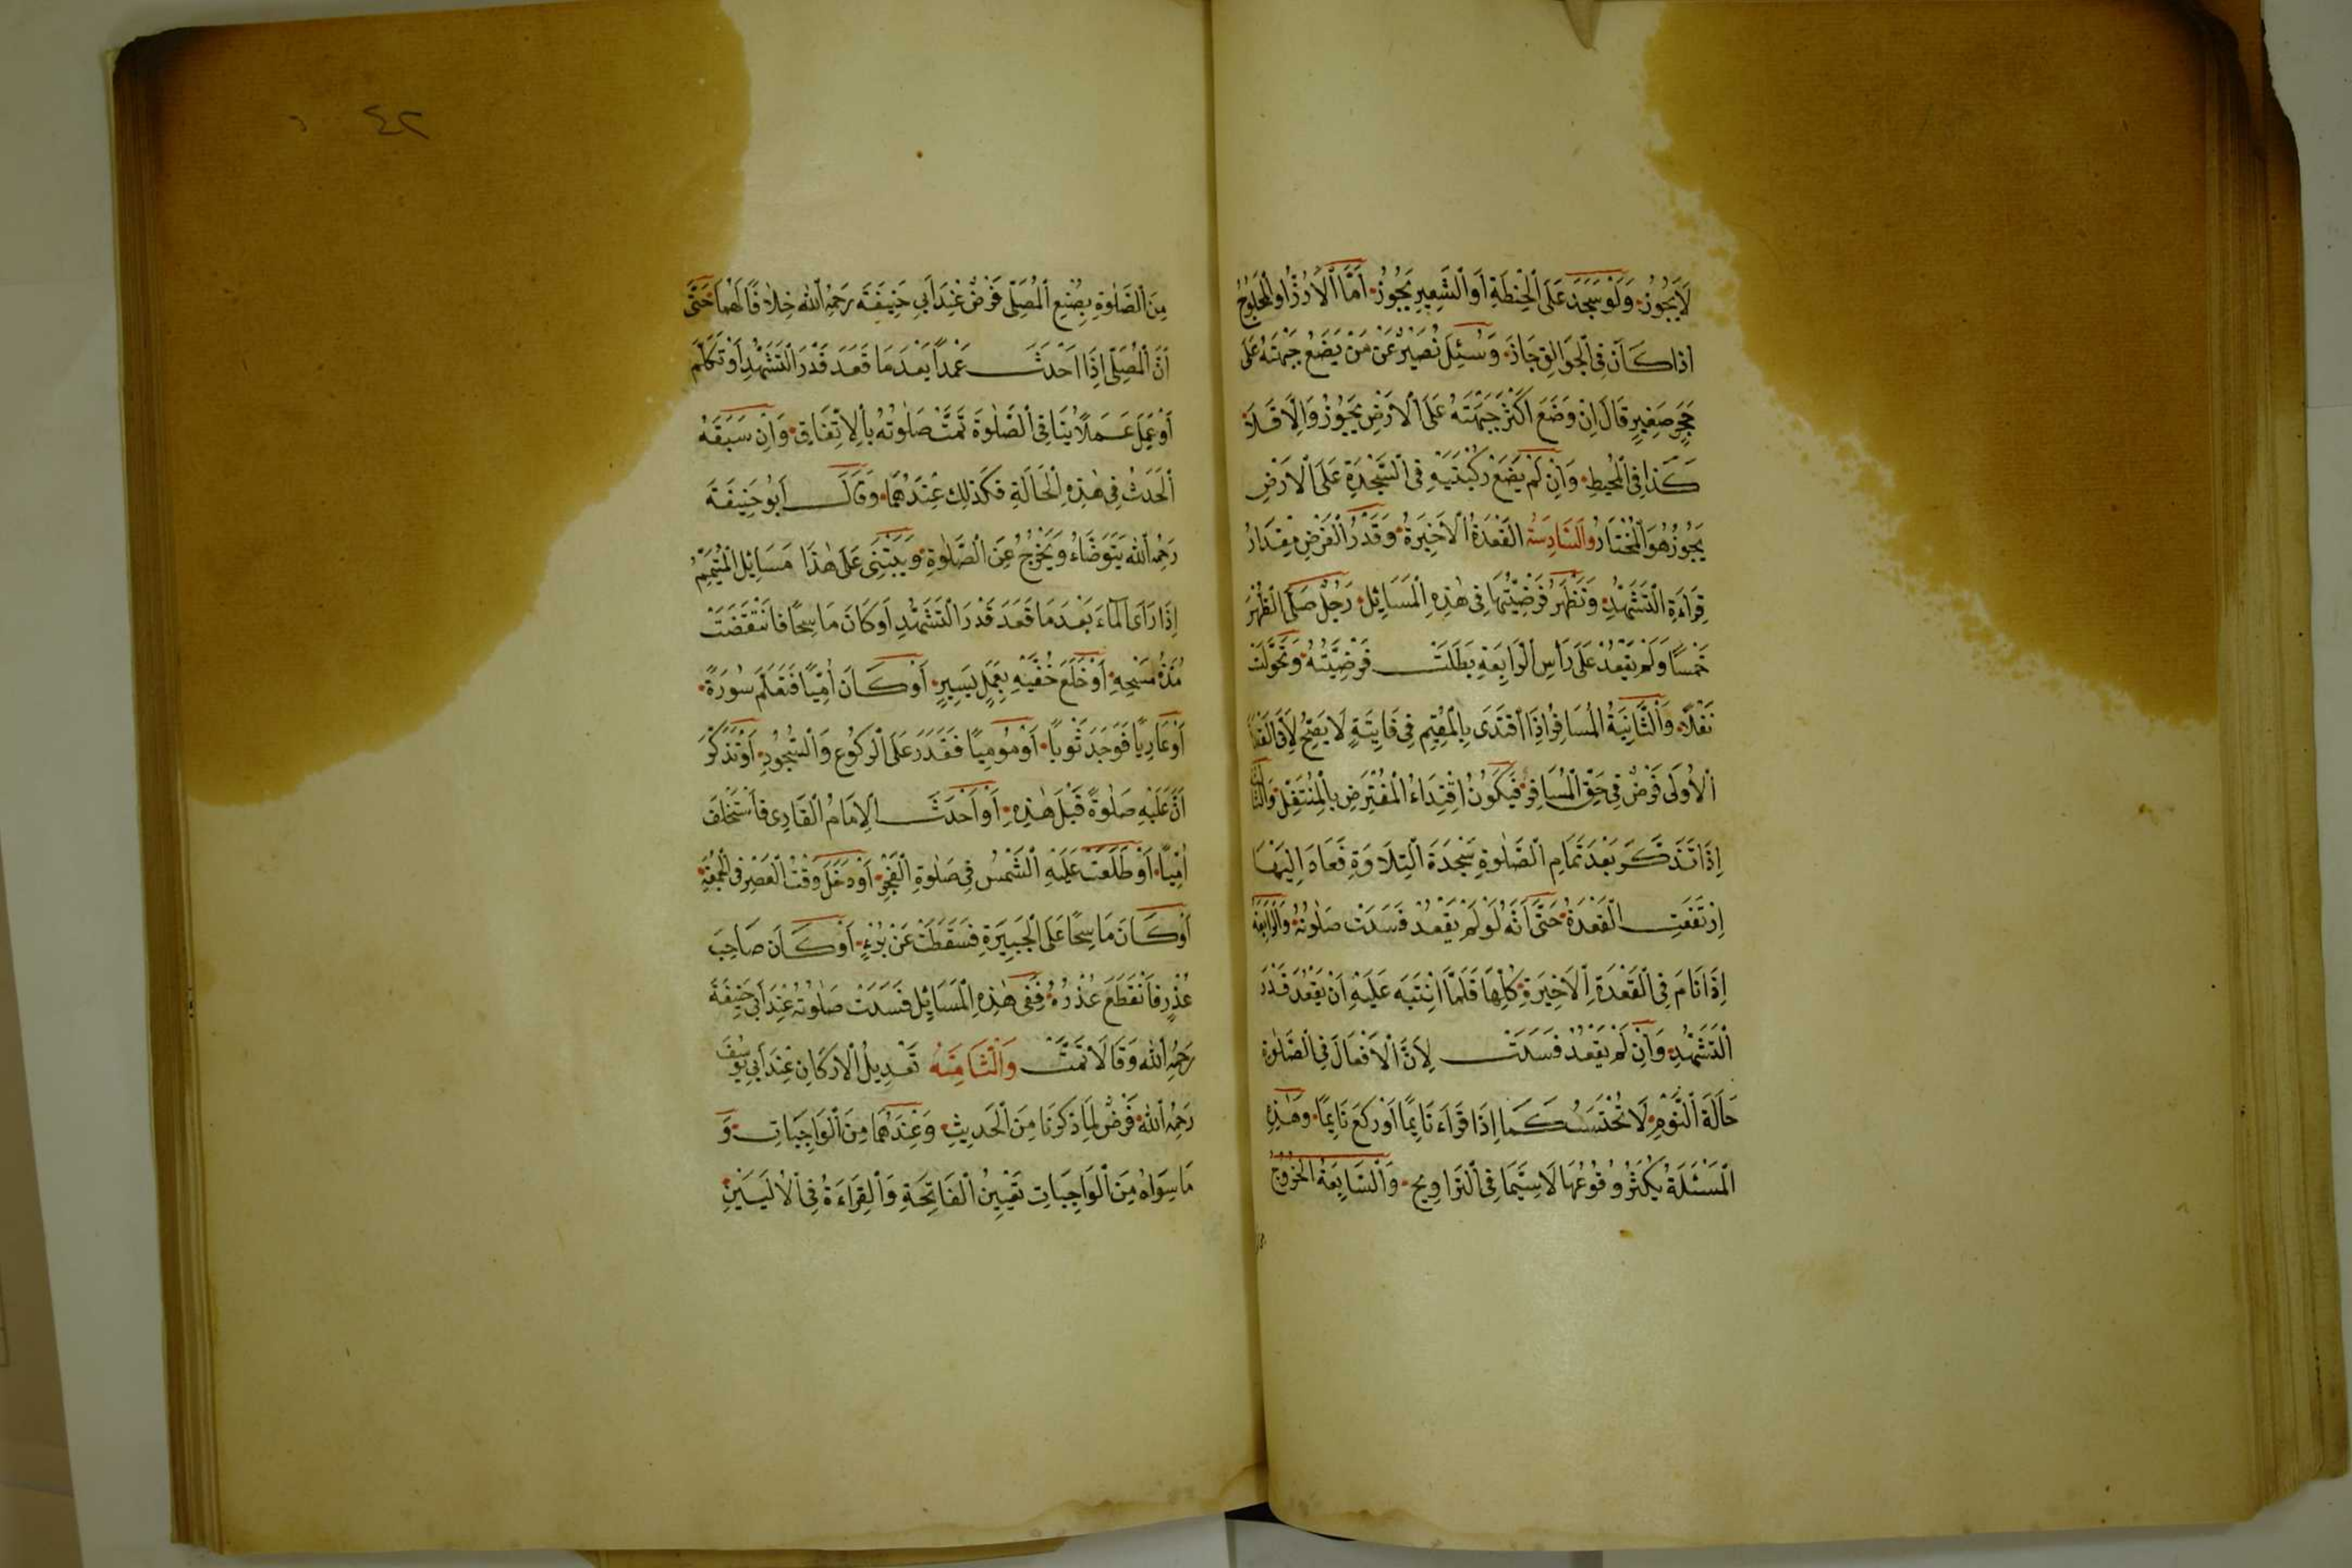 لَا يَجُوزُ وَلَوْ سَجَدَ عَلَى الْحِنْطَةِ أَوِ الشَّعِيرِ يَجُوزُ أَمَّا الْأُرْزُ أَوِ الْجَاوَرْسُ
اِذَا كَانَ فِي الْجَوَالِقِ جَازَ وَسُئِلَ نُصَيْرٌ عَنْ مَنْ يَضَعُ جَبْهَتَهُ عَلَى
حَجَرٍ صَغِيرٍ قَالَ اِنْ وَضَعَ اَكْثَرَ جَبْهَتِهِ عَلَى الْاَرْضِ يَجُوزُ وَاِلَّا فَلَا
كَذَا فِي الْمُحِيطِ وَاِنْ لَمْ يَضَعْ رُكْبَتَيْهِ فِي السَّجْدَةِ عَلَى الْاَرْضِ
يَجُوزُ هُوَ الْمُخْتَارُ وَالسَّادِسَةُ الْقَعْدَةُ الْاَخِيرَةُ وَقَدْرُ الْفَرْضِ مِقْدَارُ
قِرَاءَةِ التَّشَهُّدِ وَتَظْهَرُ فَرْضِيَّتُهَا فِي هٰذِهِ الْمَسَائِلِ رَجُلٌ صَلَّى الظُّهْرَ
خَمْسًا وَلَمْ يَقْعُدْ عَلَى رَأْسِ الرَّابِعَةِ بَطَلَتْ فَرْضِيَّتُهُ وَتَحَوَّلَتْ
نَفْلًا وَالثَّانِيَةُ الْمُسَافِرُ اِذَا اقْتَدَى بِالْمُقِيمِ فِي فَايِتَةٍ لَا يَصِحُّ لِاَنَّ الْقَعْدَةَ
الْاُولَى فَرْضٌ فِي حَقِّ الْمُسَافِرِ فَيَكُونُ اِقْتِدَاءُ الْمُفْتَرِضِ بِالْمُتَنَفِّلِ وَالثَّالِثَةُ
اِذَا تَذَكَّرَ بَعْدَ تَمَامِ الصَّلٰوةِ سَجْدَةَ التِّلَاوَةِ فَعَادَ اِلَيْهَا
اِرْتَفَعَتِ الْقَعْدَةُ حَتَّى اَنَّهُ لَوْ لَمْ يَقْعُدْ فَسَدَتْ صَلٰوتُهُ وَالرَّابِعَةُ
اِذَا نَامَ فِي الْقَعْدَةِ الْاَخِيرَةِ كُلِّهَا فَلَمَّا انْتَبَهَ عَلَيْهِ اَنْ يَقْعُدَ قَدْرَ
التَّشَهُّدِ وَاِنْ لَمْ يَقْعُدْ فَسَدَتْ لِاَنَّ الْاَفْعَالَ فِي الصَّلٰوةِ
حَالَةَ النَّوْمِ لَا تُحْتَسَبُ كَمَا اِذَا قَرَاَ نَايِمًا اَوْ رَكَعَ نَايِمًا وَهٰذِهِ
الْمَسْئَلَةُ يَكْثُرُ وُقُوعُهَا لَاسِيَّمَا فِي التَّرَاوِيحِ وَالسَّابِعَةُ الْخُرُوجُ
٤٢
مِنَ الصَّلٰوةِ بِصُنْعِ الْمُصَلِّي فَرْضٌ عِنْدَ اَبِي حَنِيفَةَ رَحِمَهُ اللهُ خِلَافًا لَهُمَا حَتَّى
اَنَّ الْمُصَلِّي اِذَا اَحْدَثَ عَمْدًا بَعْدَ مَا قَعَدَ قَدْرَ التَّشَهُّدِ اَوْ تَكَلَّمَ
اَوْ عَمِلَ عَمَلًا يُنَافِي الصَّلٰوةَ تَمَّتْ صَلٰوتُهُ بِالْاِتِّفَاقِ وَاِنْ سَبَقَهُ
الْحَدَثُ فِي هٰذِهِ الْحَالَةِ فَكَذٰلِكَ عِنْدَهُمَا وَقَالَ اَبُو حَنِيفَةَ
رَحِمَهُ اللهُ يَتَوَضَّاءُ وَيَخْرُجُ عَنِ الصَّلٰوةِ وَيَبْتَنِي عَلَى هٰذَا مَسَائِلُ الْمُتَيَمِّمُ
اِذَا رَاَى الْمَاءَ بَعْدَ مَا قَعَدَ قَدْرَ التَّشَهُّدِ اَوْ كَانَ مَاسِحًا فَانْقَضَتْ
مُدَّةُ مَسْحِهِ اَوْ خَلَعَ خُفَّيْهِ بِعَمَلٍ يَسِيرٍ اَوْ كَانَ اُمِّيًّا فَتَعَلَّمَ سُورَةً
اَوْ عَارِيًا فَوَجَدَ ثَوْبًا اَوْ مُومِيًا فَقَدَرَ عَلَى الرُّكُوعِ وَالسُّجُودِ اَوْ تَذَكَّرَ
اَنَّ عَلَيْهِ صَلٰوةً قَبْلَ هٰذِهِ اَوْ اَحْدَثَ الْاِمَامُ الْقَارِي فَاسْتَخْلَفَ
اُمِّيًّا اَوْ طَلَعَتْ عَلَيْهِ الشَّمْسُ فِي صَلٰوةِ الْفَجْرِ اَوْ دَخَلَ وَقْتُ الْعَصْرِ فِي الْجُمُعَةِ
اَوْ كَانَ مَاسِحًا عَلَى الْجَبِيرَةِ فَسَقَطَتْ عَنْ بُرْءٍ اَوْ كَانَ صَاحِبَ
عُذْرٍ فَانْقَطَعَ عُذْرُهُ فَفِي هٰذِهِ الْمَسَايِلِ فَسَدَتْ صَلٰوتُهُ عِنْدَ اَبِي حَنِيفَةَ
رَحِمَهُ اللهُ وَقَالَا تَمَّتْ وَالثَّامِنَةُ تَعْدِيلُ الْاَرْكَانِ عِنْدَ اَبِي يُوسُفَ
رَحِمَهُ اللهُ فَرْضٌ لِمَا ذَكَرْنَا مِنَ الْحَدِيثِ وَعِنْدَهُمَا مِنَ الْوَاجِبَاتِ وَ
مَا سِوَاهُ مِنَ الْوَاجِبَاتِ تَعْيِينُ الْفَاتِحَةِ وَالْقِرَاءَةُ فِي الْاُولَيَيْنِ